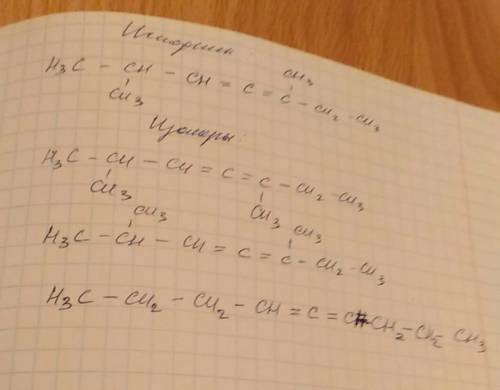 CH₃
H₃C – CH – CH = C = C – CH₂ – CH₃
CH₃
Изомеры:
H₃C – CH – CH = C = C – CH₂ – CH₃
CH₃ CH₃
CH₃ CH₃
H₃C – CH – CH = C = C – CH₂ – CH₃
H₃C – CH₂ – CH₂ – CH = C = CH CH₂ – CH₂ CH₃